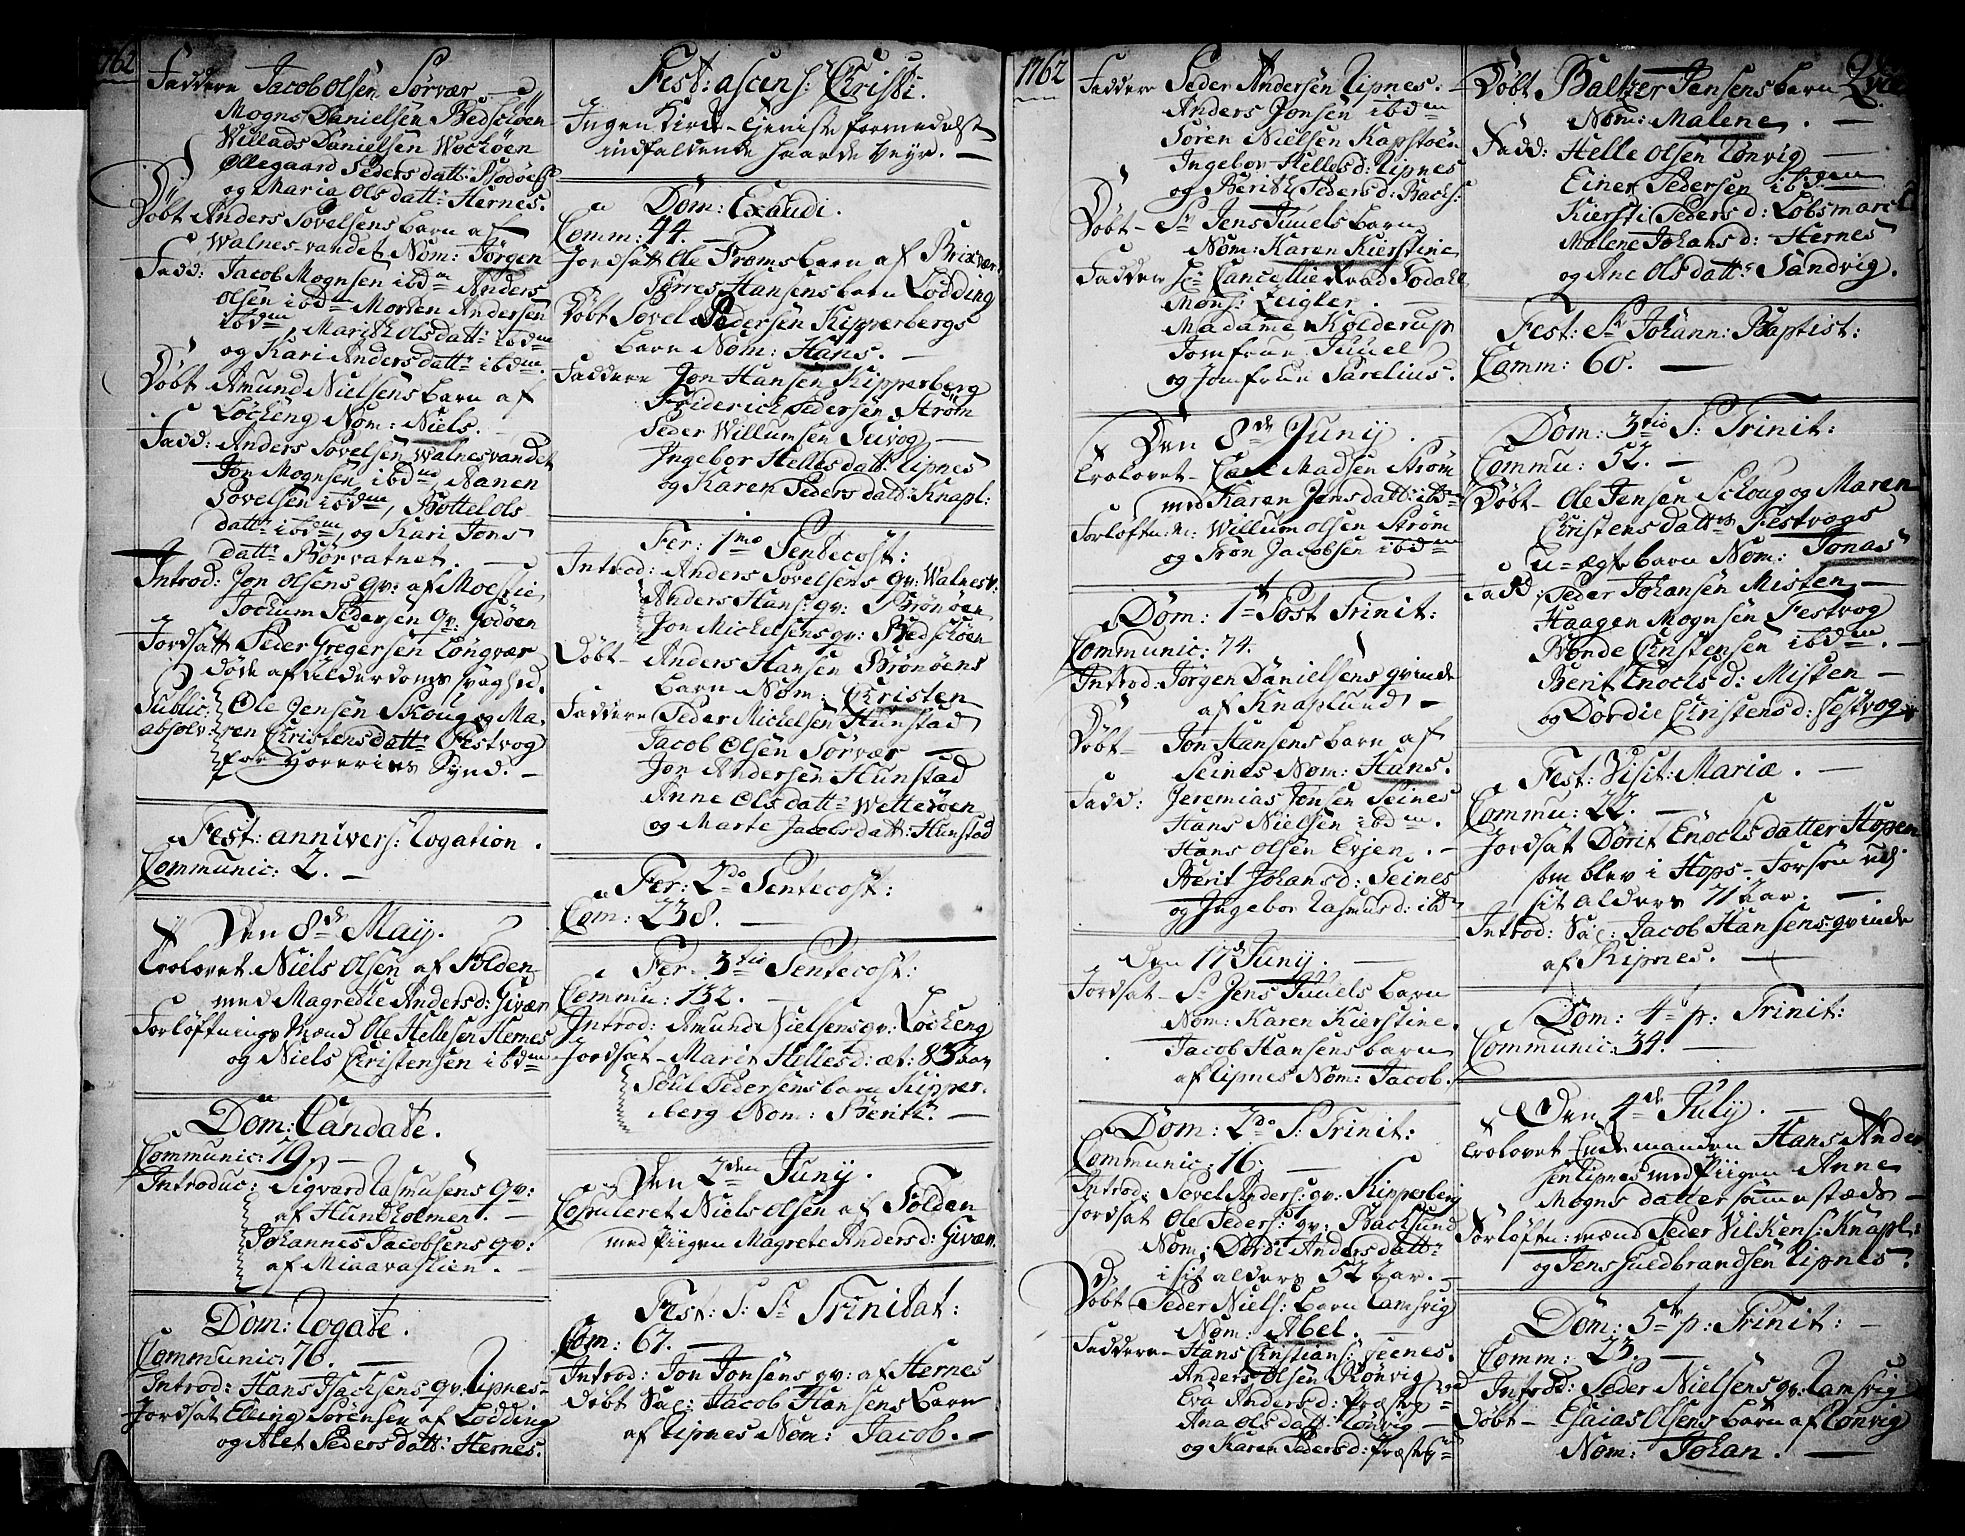 1762
Faddere Jacob Olsen Sørvær
Mogns Danielsen Bedschøen
Willads Danielsen Wochøen
Øllegaard Peders datt: Bodøe
og Maria Olsdatt: Hernes.
Døbt Anders Sovelsens barn af
Walnes-vandet Nom: Jørgen
Fadd: Jacob Mognsen ibdm Anders
Olsen ibdm Morten Andersen
ibdm, Marith Olsdatt: ibdm
og Kari Andersdatt: ibdm.
Døbt Amund Nielsens barn af
Løcheng Nom: Niels.
Fadd: Anders Sovelsen Walnesvandet
Jon Mognsen ibdm, Aanen
Sovelsen ibdm, Bottel Ols
datt: ibdm, og Kari Jons
datt: Børvatnet.
Introd: Jon Olsens qv: af Moestie
Jochum Pedersen qv: Godøen
Jordsatt Peder Gregersen Longvær
døde af alderdoms svaghed.
Public: Ole Jensen Skoug og Ma-
absolv: ren Christens datt: Festvog
for Horeries Synd.
Fest: annivers: Rogation.
Communic: 2.
Den 8de Maij.
Trolovet Niels Olsen af Folden
med Magrete Anders d: Givær
Forløftnings Mænd Ole Hellesen Hernes
og Niels Christensen ibdm
Dom: Cantate.
Communic: 19.
Introduc: Sigvard Rasmusens qv:
af Hundholmen.
Johannes Jacobsens qv:
af Misværstien.
Dom: Rogate.
Communic: 76.
Introd: Hans Isachsens qv: Ripnes
Jordsat Elling Sørensen af Lødding
og Alet Peders datt: Hernes.
Fest: ascens: Christi.
Ingen Kirke-tjeniste formedelst
indfaldende haarde Veyr.
Dom: Exaudi.
Comm: 44.
Jordsatt Ole Proms barn af Brixvær
Torres Hansens barn Lødding
Døbt Sovel Pedersen Kipperbergs
barn Nom: Hans.
Faddere Jon Hansen Kipperberg
Friderich Pedersen Strøm
Peder Willumsen Seivog
Ingebor Hellesdatt: Ripnes
og Karen Peders datt: Knapl:
Fer: 1mo Pentecost:
Introd: Anders Sovelsens qv: Walnesv:
Anders Hans: qv: Brønøen
Jon Michelsens qv: Bedschøen
Døbt Anders Hansen Brønøens
barn Nom: Christen
Faddere Peder Michelsen Hunstad
Jacob Olsen Sørvær
Jon Andersen Hunstad
Anne Olsdatt: Wetterøen
og Marte Jacobsdatt: Hunstad
Fer: 2do Pentecost:
Com: 238.
Fer: 3tio Pentecost:
Commu: 132.
Introd: Amund Nielsens qv: Løcheng
Jordsat Marit Helles d: æt: 83 aar
Poul Pedersens barn Kipper-
berg Nom: Bente.
Den 2den Junij.
Copuleret Niels Olsen af Folden
med Piigen Magrete Anders d: Givær.
Fest: S: St Trinitat:
Com: 67.
Introd: Jon Jonsens qv: af Hernes
Døbt Sal: Jacob Hansens barn
af Ripnes Nom: Jacob.
1762
Faddere Peder Andersen Ripnes.
Anders Jonsen ibdm
Søren Nielsen Kapstøen
Ingebor Helles d: Ripnes
og Berith Peders d: Bachs:
Døbt Sr Jens Juuels barn
Nom: Karen Kierstine
Faddere Sr Cancellie Raad Todahl
Mons: Zeigler.
Madame Kolderup
Jomfrue Juuel
og Jomfrue Parelius.
Den 8de Junij
Trolovet Carl Madsen Strøm
med Karen Jensdatt: ibdm
Forløftn: m: Willum Olsen Strøm
og Tron Jacobsen ibdm
Dom: 1ma Post Trinit:
Communic: 74.
Introd: Jørgen Danielsens qvinde
af Knaplund
Døbt Jon Hansens barn af
Seines Nom: Hans.
Fadd: Jeremias Jonsen Seines
Hans Nielsen ibdm.
Hans Olsen Erjen.
Berit Johans d: Seines
og Ingebor Rasmus d: ibd
den 17de Junij.
Jordsat Sr Jens Juuels barn
Nom: Karen Kierstine.
Jacob Hansens barn
af Ripnes Nom: Jacob.
Dom: 2do P: Trinit:
Communic: 16.
Introd: Sovel Anders: qv: Kipperberg
Jordsat Ole Peders: qv: Bachsund
Nom: Dordi Andersdatt:
i sit alders 52 aar.
Døbt Peder Niels: barn Ramsvig
Nom: Abel.
Faddere Hans Christians: Jeenes.
Anders Olsen Rønvig
Eva Anders d: Præsteg:
Ana Olsdatt: Rønvig
og Karen Peders d: Præsteg:
Døbt Baltzer Jensens barn
Nom: Malene.
Fadd: Helle Olsen Rønvig
Einer Pedersen ibidem
Kiersti Peders d: Løbsmarc
Malene Johans d: Hernes
og Ane Olsdatt: Sandvig.
Fest: St Johann: Baptist:
Comm: 60.
Dom: 3tio P: Trinit:
Commu: 52.
Døbt Ole Jensen Schoug og Maren
Christens datt: Festvogs
u-ægte barn Nom: Jonas
Fadd: Peder Johansen Misten
Haagen Mognsen Festvog
Børde Christensen ibdm.
Berit Enochs d: Misten
og Dordie Christens d: Festvog
Fest: Visit: Mariæ.
Commu: 22.
Jordsat Dorit Enochs datter Hopen
som blev i Hops-Forsen udj
sit alders 71 aar.
Introd: Sal: Jacob Hansens qvinde
af Ripnes.
Dom: 4ta p: Trinit:
Communic: 34.
Den 4de Julij.
Trolovet Enkemanden Hans Ander
sen Ripnes med Piigen Anne
Mogns datter sammestæds
Forløftn: mænd Peder Vilkens: Knapl:
og Jens Hildbrandsen Ripnes.
Dom: 5te p: Trinit:
Comm: 23.
Introd: Peder Nielsens qv: Ramsvig
Døbt Esaias Olsens barn af Rønvig
Nom: Johan.